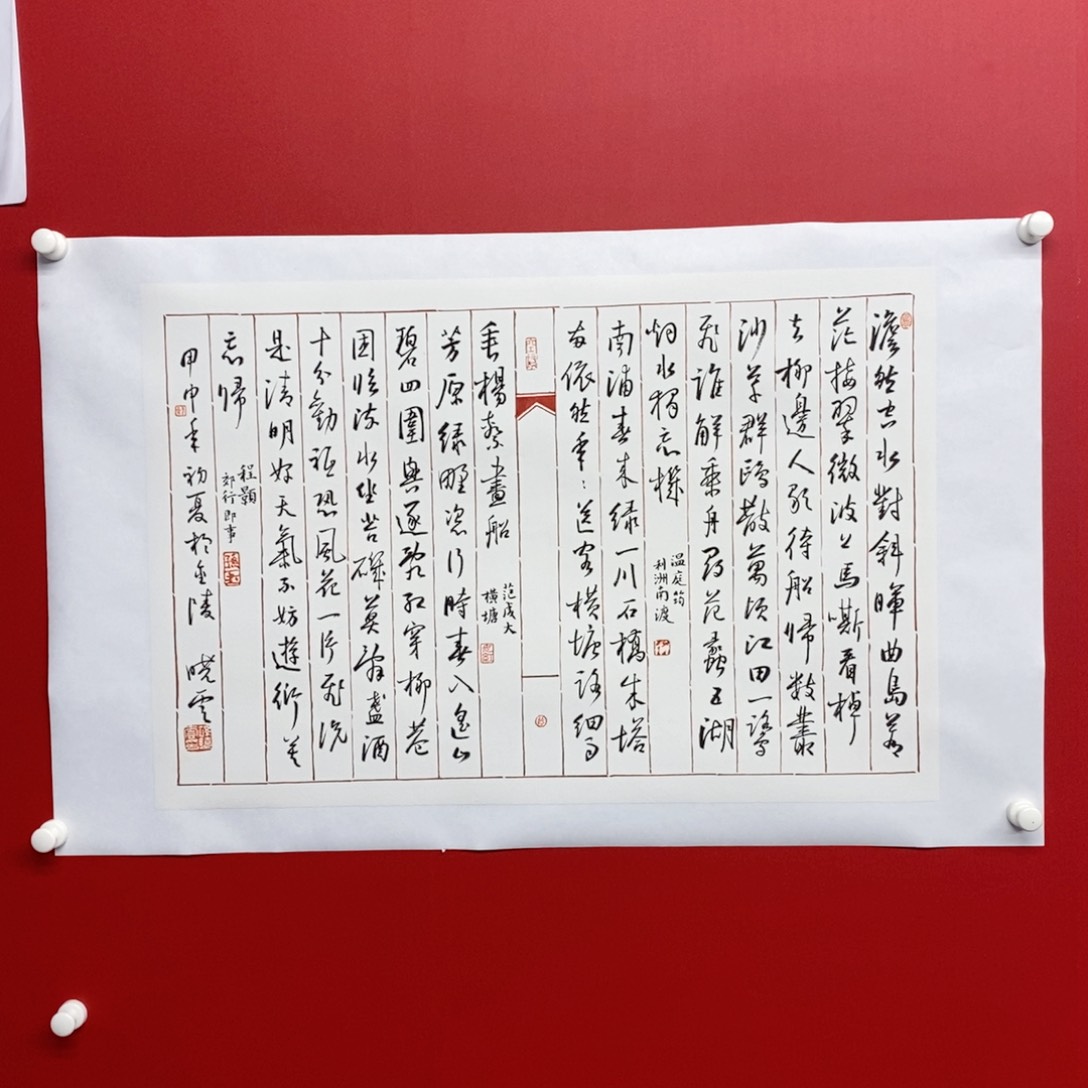 澹然空水對斜暉曲島蒼
茫接翠微波上馬嘶看棹
去柳邊人歇待船歸數叢
沙草群鷗散萬頃江田一鷺
飛誰解乘舟尋范蠡五湖
烟水獨忘機
温庭筠
利洲南渡
南浦春来绿一川石橋朱塔
兩依然年〻送客橫塘路細雨
垂楊繫畫船
范成大
橫塘
芳原绿野恣行時春入遥山
碧四圍興逐亂红穿柳巷
困臨流水坐苔磯莫辭盞酒
十分勸祗恐風花一片飛況
是清明好天氣不妨遊衍莫
忘歸
程顥
郊行即事
甲申年初夏於金陵 晓雲